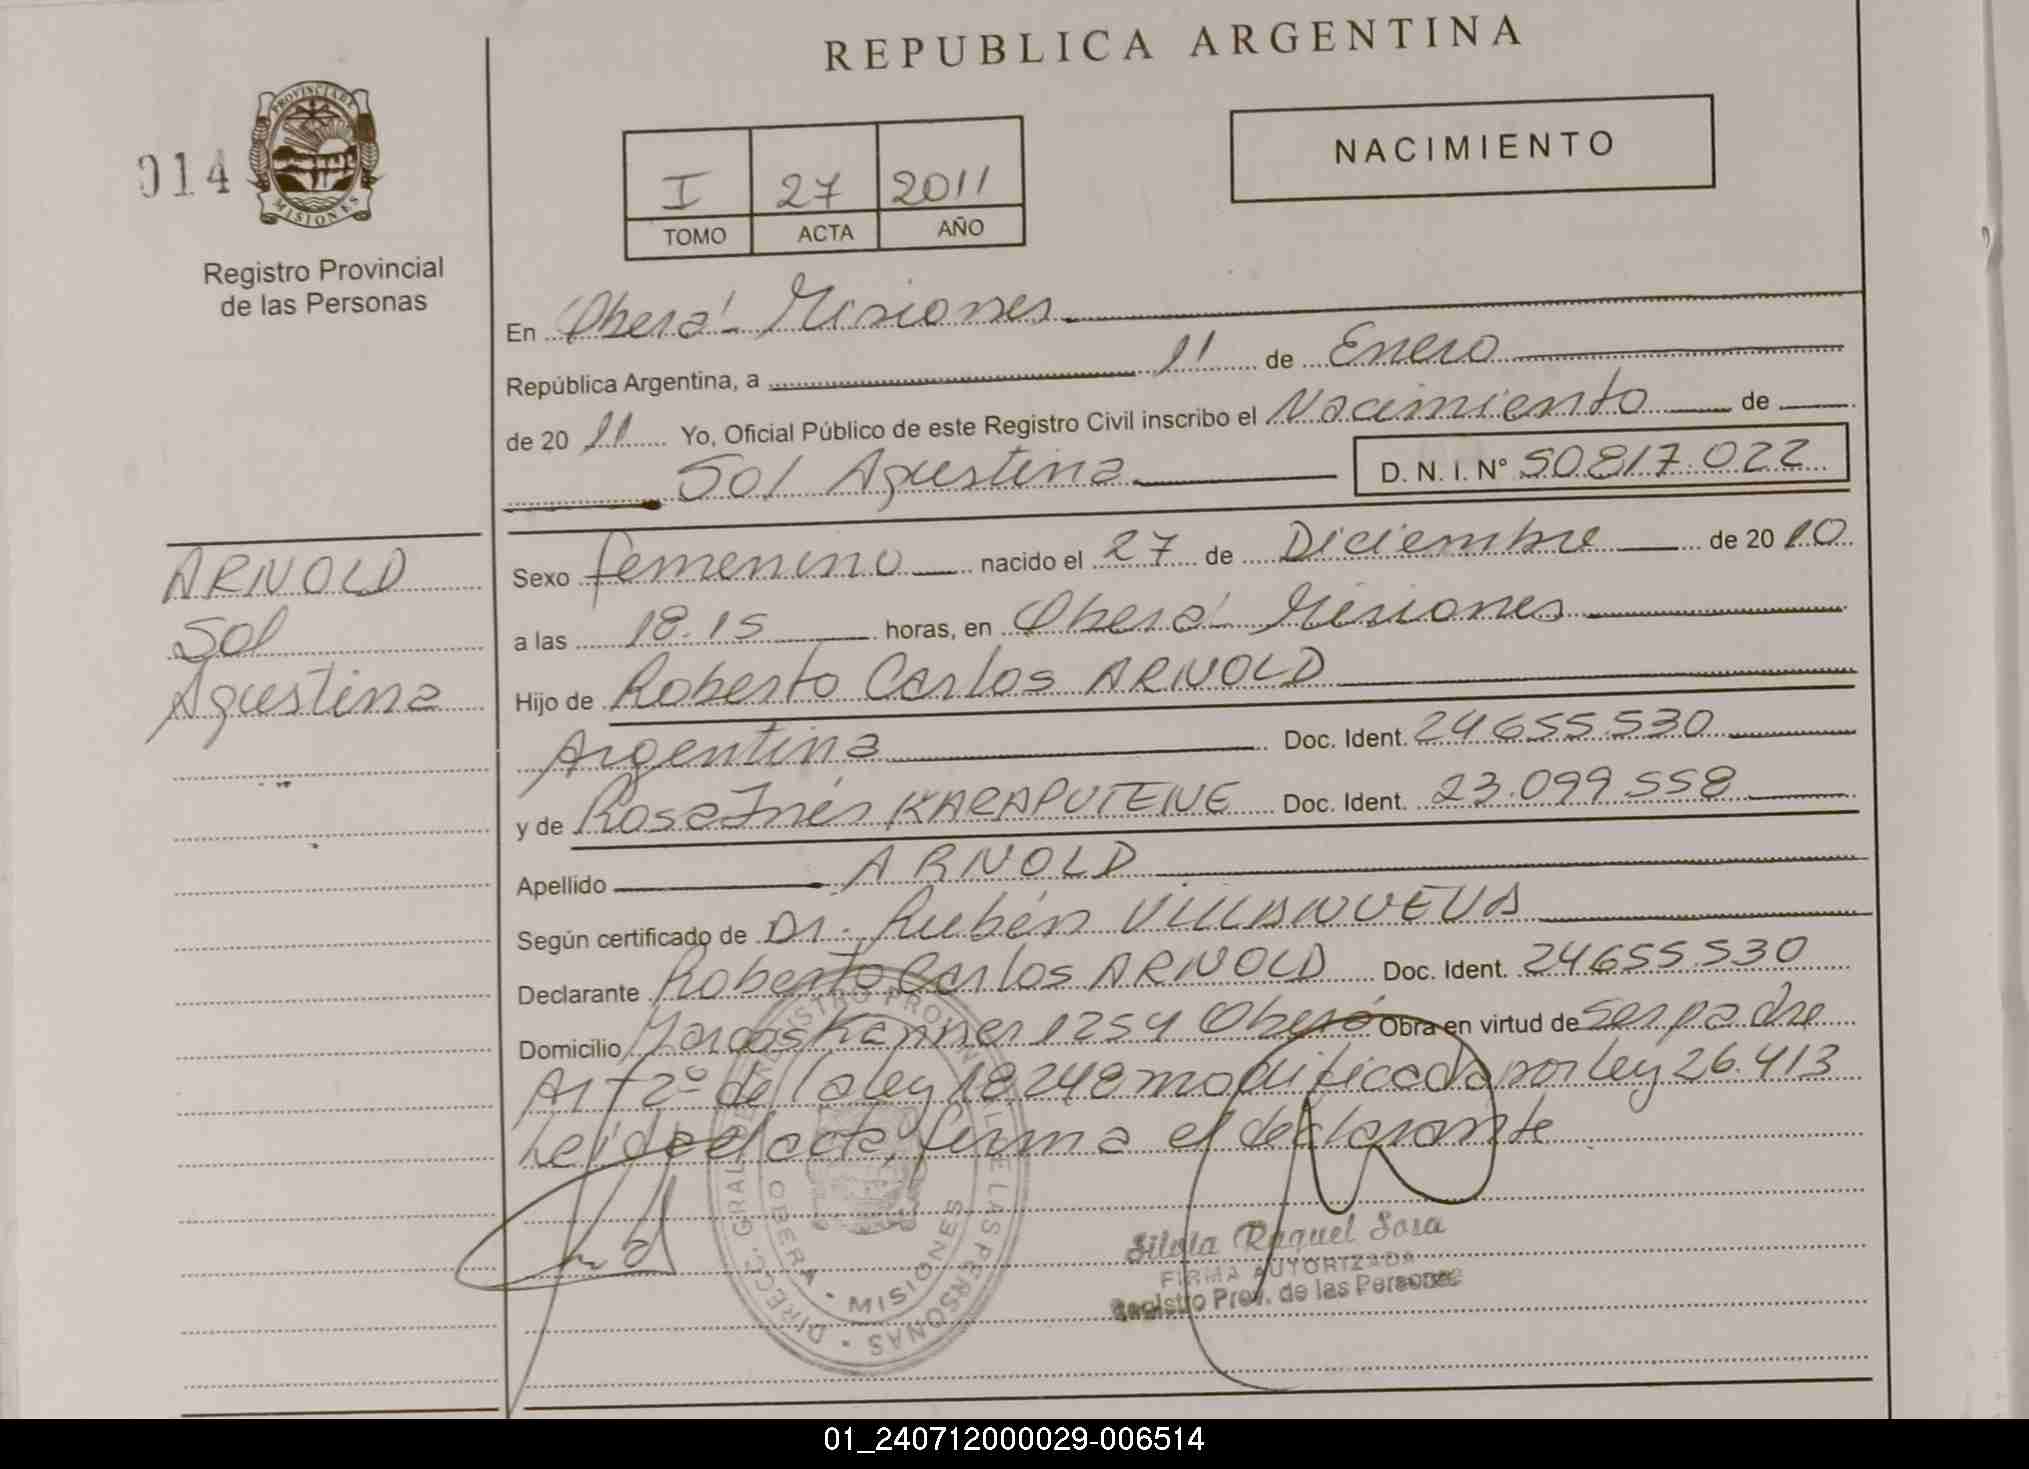 REPUBLICA ARGENTINA
014
PROVINCIA DE
MISIONES
Registro Provincial
de las Personas
I 27 2011
TOMO ACTA AÑO
NACIMIENTO
En Oberá - Misiones
República Argentina, a 11 de Enero
de 20 11 Yo, Oficial Público de este Registro Civil inscribo el Nacimiento de
Sol Agustina D. N. I. N° 50.817.022
ARNOLD
Sol
Agustina
Sexo femenino nacido el 27 de Diciembre de 20 10
a las 18.15 horas, en Oberá - Misiones
Hijo de Roberto Carlos ARNOLD
Argentina Doc. Ident. 24655.530
y de Rosa Inés KARAPUTENE Doc. Ident. 23.099.558
Apellido ARNOLD
Según certificado de Dr. Rubén VILLANUEVA
Declarante Roberto Carlos ARNOLD Doc. Ident. 24655.530
Domicilio Marcos Kanner 1254 Oberá Obra en virtud de ser padre
Art 2º de la ley 18.248 modificada por ley 26.413
Leída el acta, firma el declarante
DIRECC. GRAL. DEL REGISTRO PROVINCIAL DE LAS PERSONAS
OBERA - MISIONES
Silvia Raquel Sosa
FIRMA AUTORIZADA
Registro Prov. de las Personas
01_240712000029-006514